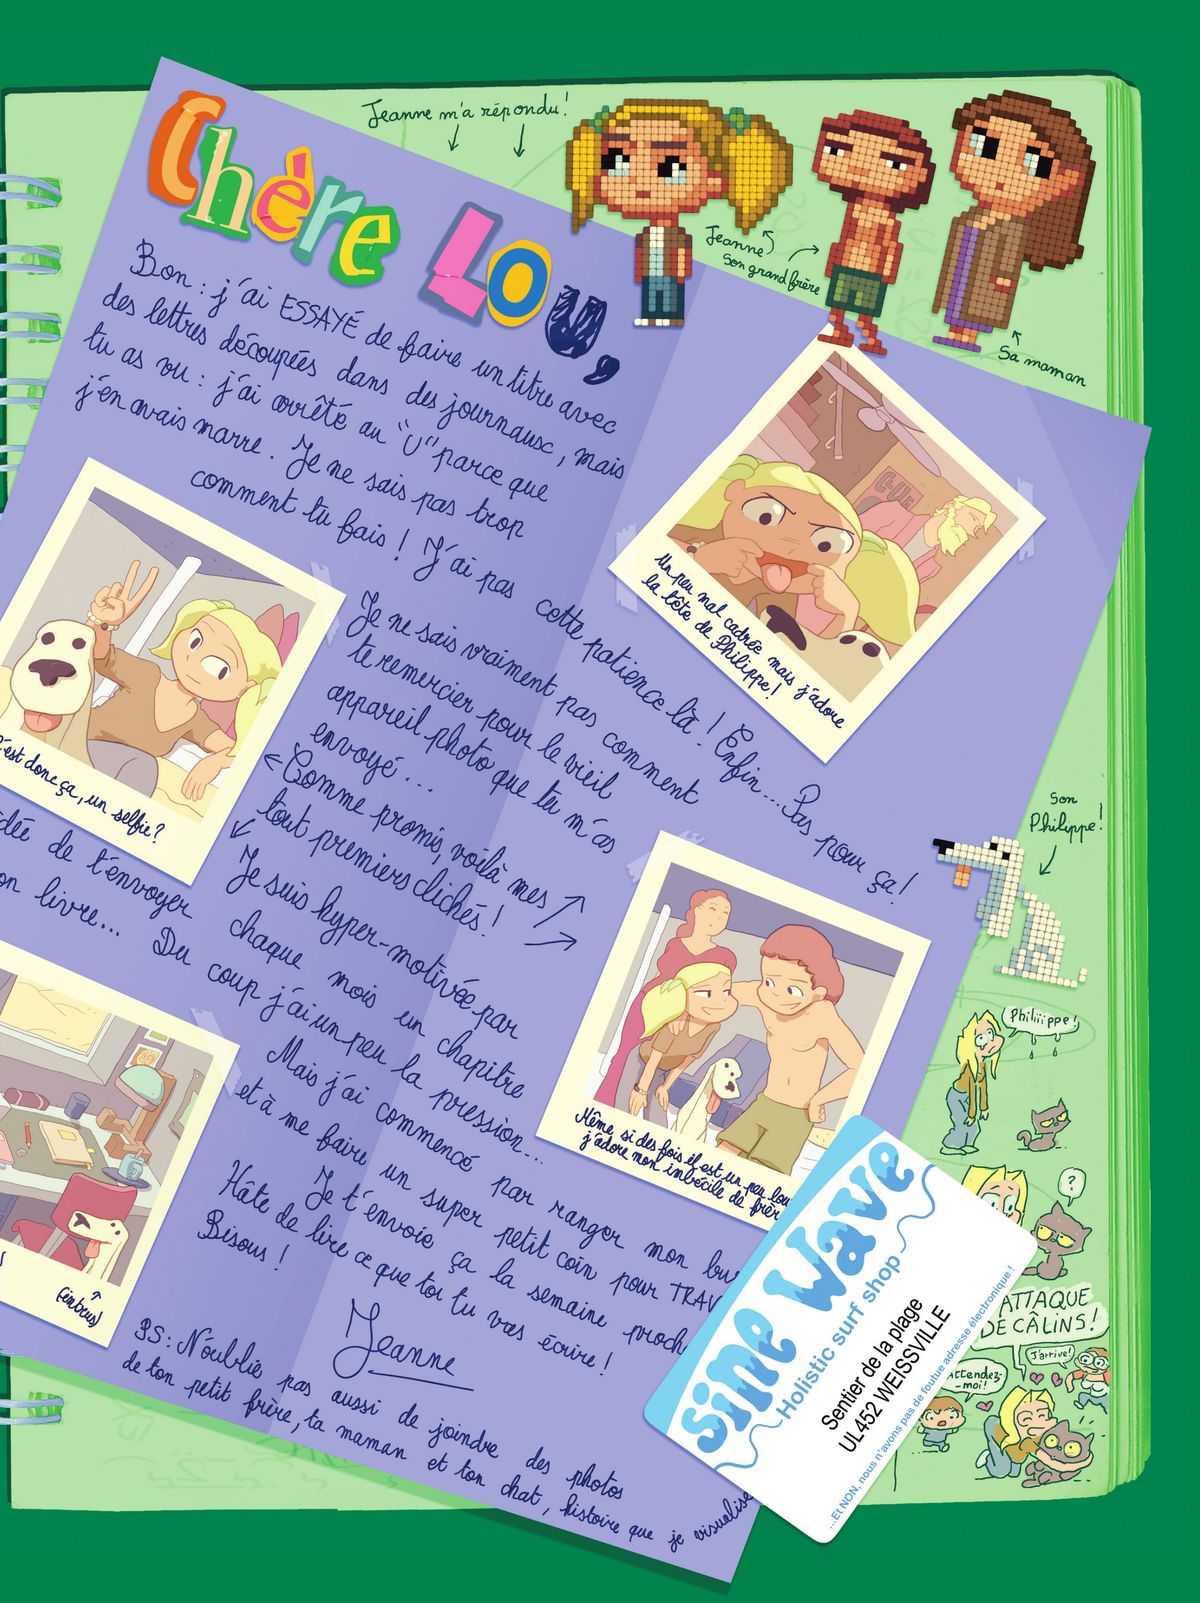 Jeanne m'a répondu!
Chère Lou,
Jeanne
Son grand frère
Sa maman
Bon : j'ai ESSAYÉ de faire un titre avec
des lettres découpées dans des journaux, mais
tu as vu : j'ai arrêté au "U" parce que
j'en avais marre. Je ne sais pas trop
comment tu fais ! J'ai pas cette patience là ! Enfin... Pas pour ça !
Un peu mal cadrée mais j'adore
la tête de Philippe !
Je ne sais vraiment pas comment
te remercier pour le vieil
appareil photo que tu m'as
envoyé...
Comme promis, voilà mes
tout premiers clichés !
C'est donc ça, un selfie?
Son
Philippe !
Je suis hyper-motivée par
idée de t'envoyer chaque mois un chapitre
on livre... Du coup j'ai un peu la pression...
Mais j'ai commencé par ranger mon
et à me faire un super petit coin pour TRAV
Je t'envoie ça la semaine proch
Hâte de lire ce que toi tu vas écrire !
Bisous !
Même si des fois il est un peu
j'adore mon imbécile de
(intrus)
Jeanne
PS : N'oublie pas aussi de joindre des photos
de ton petit frère, ta maman et ton chat, histoire que je visualise
Sine Wave
Holistic surf shop
Sentier de la plage
UL452 WEISSVILLE
...Et NON, nous n'avons pas de foutue adresse électronique !
Philiiippe !
?
ATTAQUE
DE CÂLINS !
J'arrive!
Attendez-
moi !